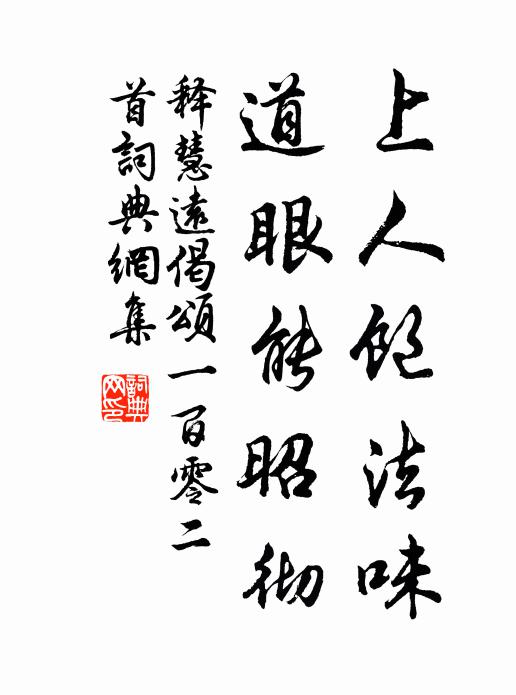 上人飽法味
道眼能昭彻
释慧遠偈頌一百零二
首詞典網集
詞典網印